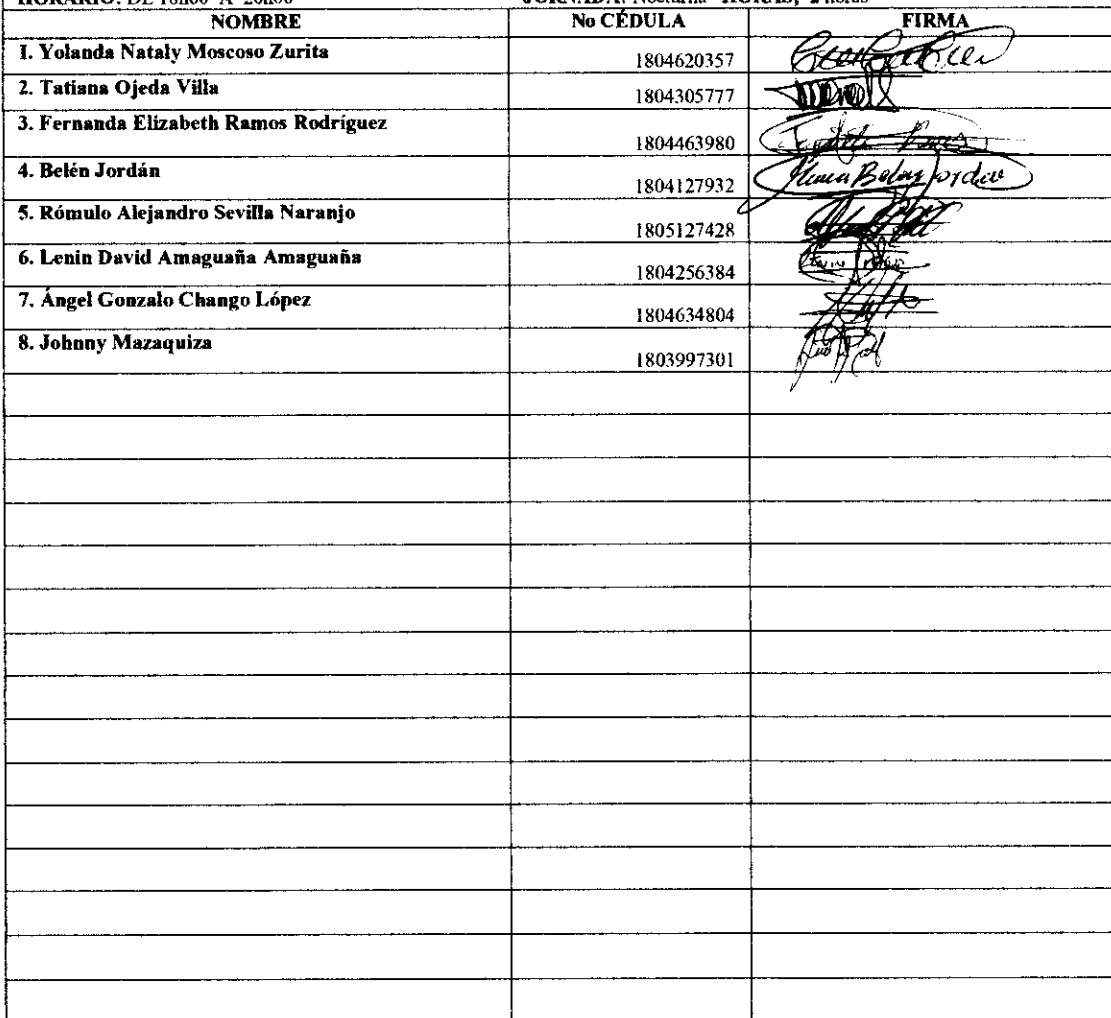 HORARIO: DE 18h00 A 20h00 JORNADA: Nocturna HORAS; 2 horas
NOMBRE No CÉDULA FIRMA
1. Yolanda Nataly Moscoso Zurita 1804620357
2. Tatiana Ojeda Villa 1804305777
3. Fernanda Elizabeth Ramos Rodríguez 1804463980
4. Belén Jordán 1804127932
5. Rómulo Alejandro Sevilla Naranjo 1805127428
6. Lenin David Amaguaña Amaguaña 1804256384
7. Ángel Gonzalo Chango López 1804634804
8. Johnny Mazaquiza 1803997301